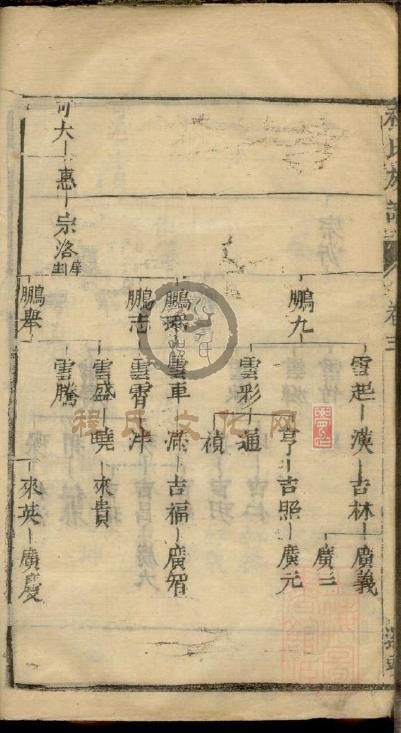 程氏族譜 卷之三
雲起 漢 吉林 廣義
廣三
鵬九
亨 吉照 廣元
雲彩 通
禎
雲車 滿 吉福 廣智
鵬志 雲霄 沖
雲盛 曉 來貴
可大 惠 宗洛
雲騰
鵬舉
來英 廣慶
程氏文化网